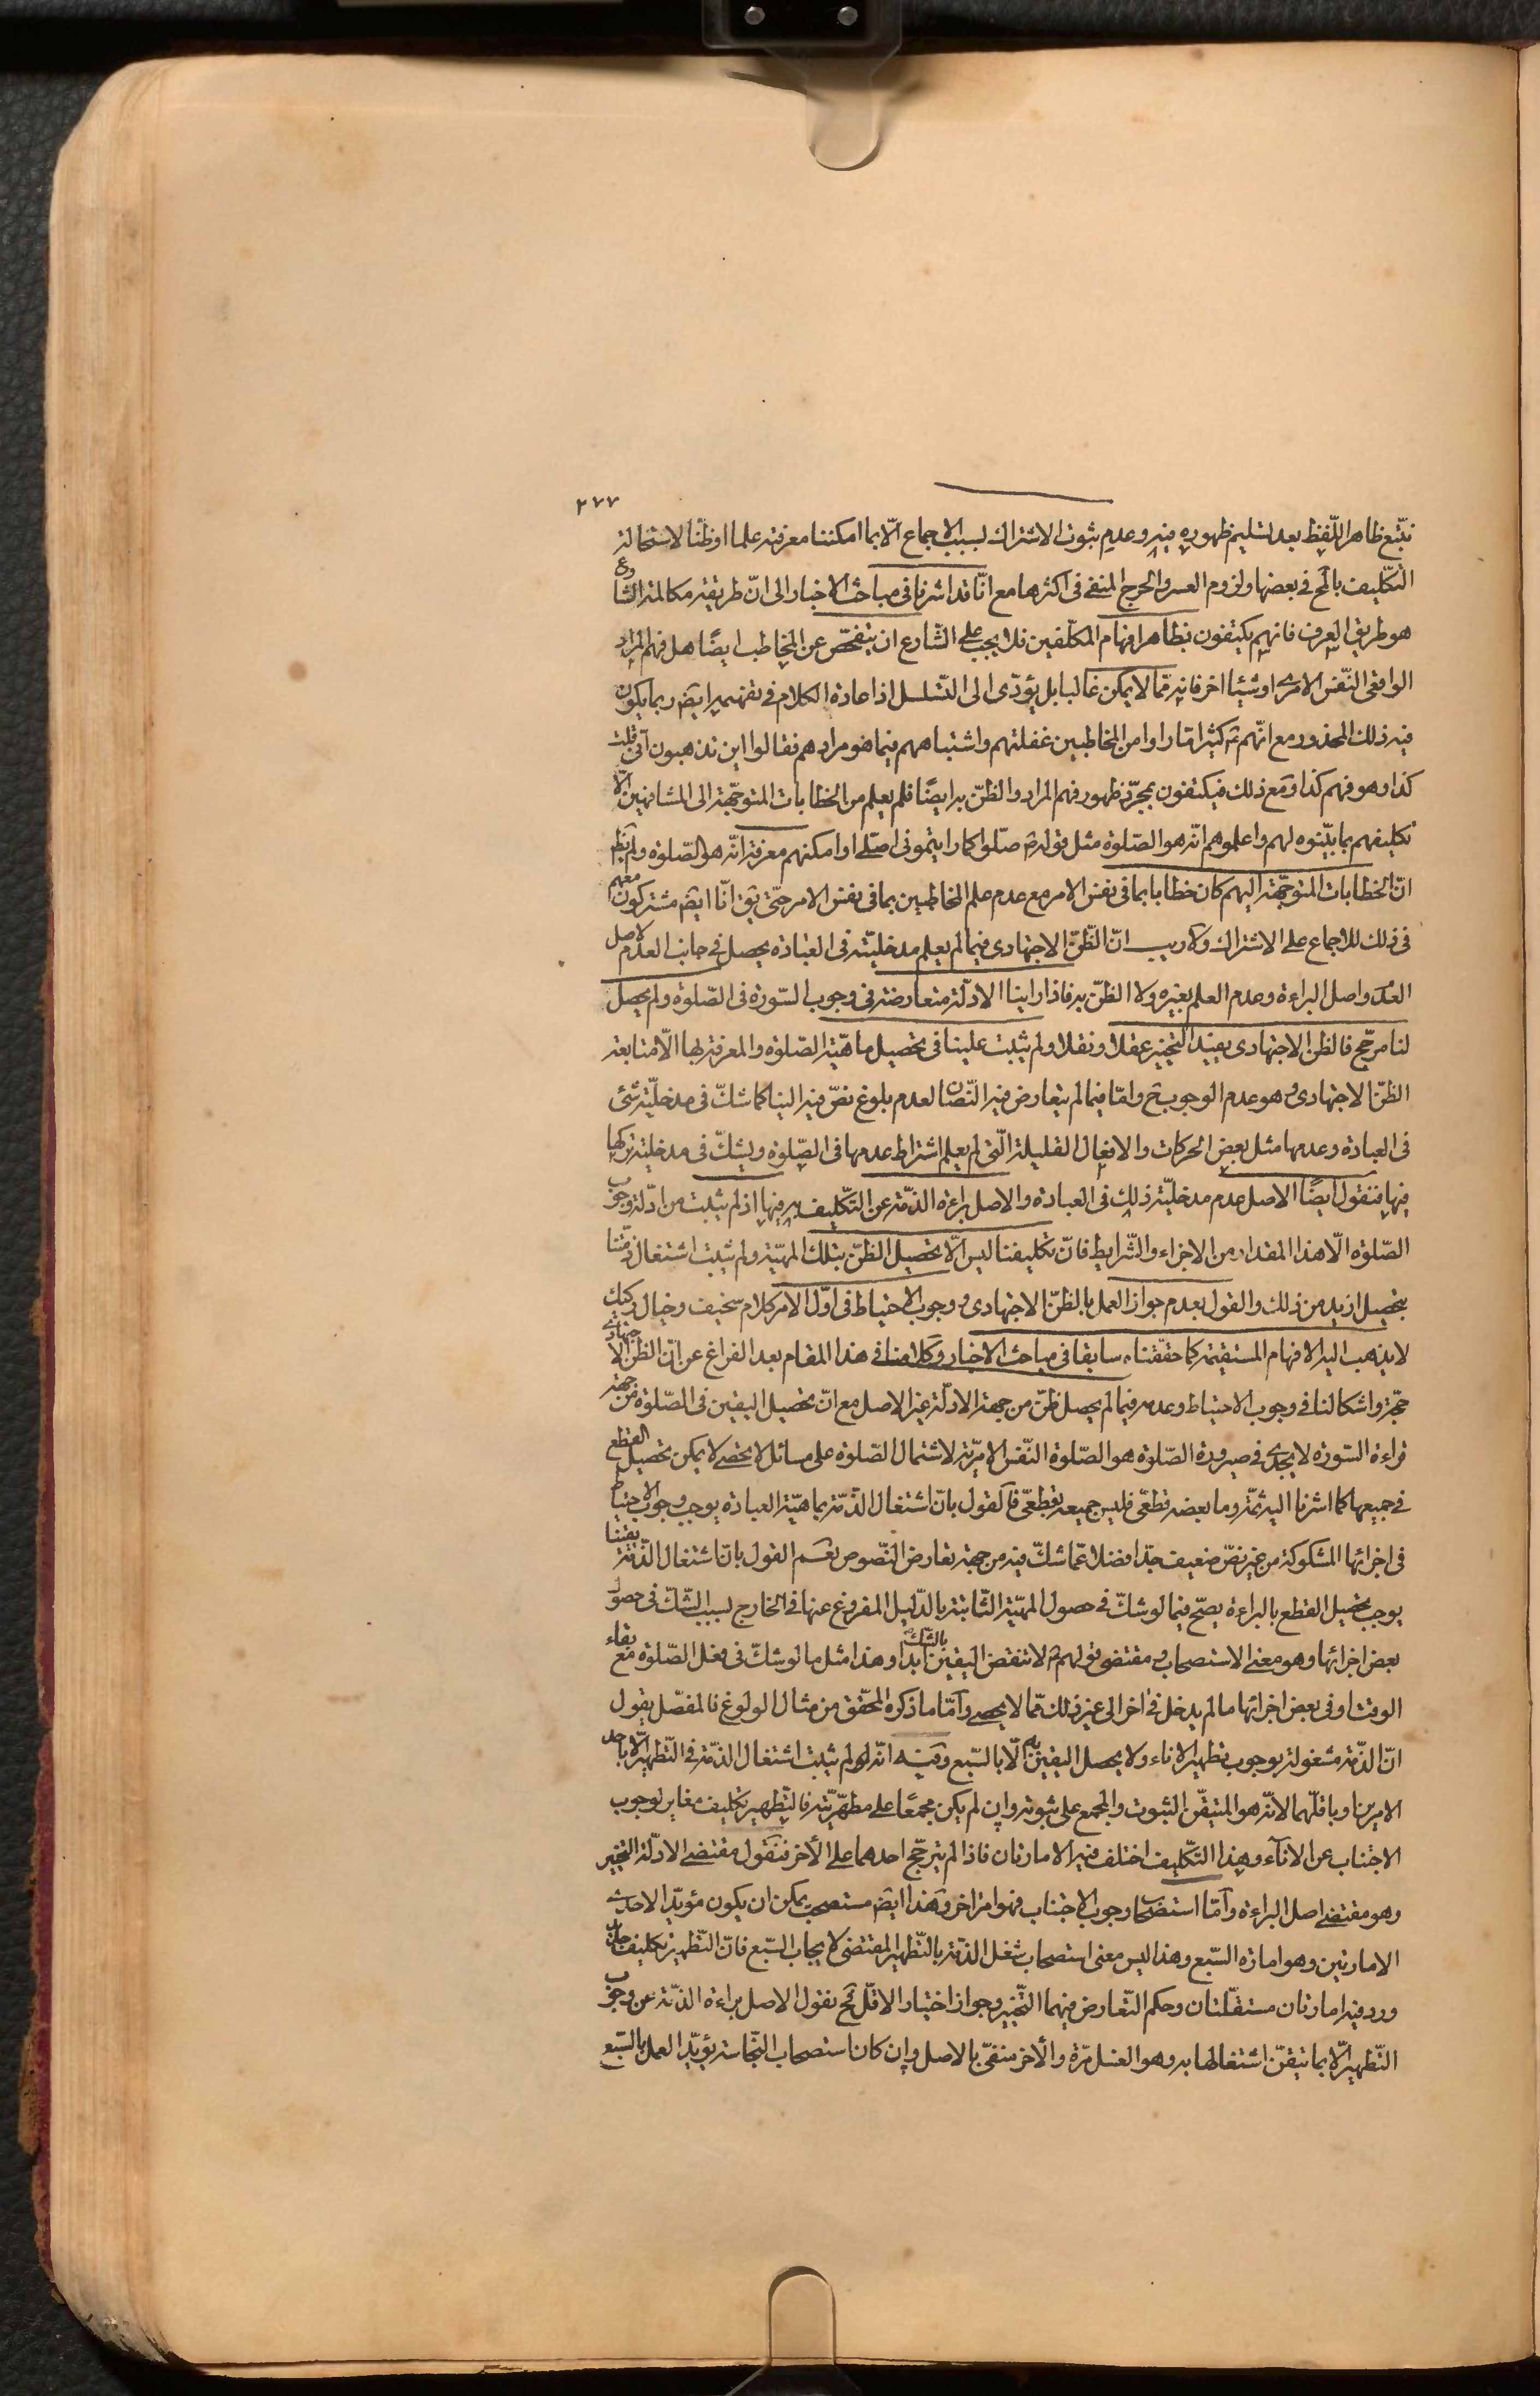 ٢٧٧
نتّبع ظاهر اللّفظ بعد تسليم ظهوره فيه وعدم ثبوت الاشتراك بسبب الاجماع الّا بما امكننا معرفته علما او ظنّا لاستحالة
التكّليف بالمح في بعضها ولزوم العسر والحرج المنفي في اكثرها مع انّا قد اشرنا في مباحث الاخبار الى انّ طريقة مكالمة الشارع
هو طريق العرف فانهم يكتفون بظاهر افهام المكلّفين فلا يجب على الشّارع ان يتفحّص عن المخاطب ايضًا هل فهم المراد
الواقعى النّفس الامرى او شيئا اخر فانه ممّا لا يمكن غالبا بل يؤدّى الى التّسلسل اذ اعادة الكلام في تفهيمه ايضَ ربما يكون
فيه ذلك المحذور مع انّهم ع كثيرا مّا راوا من المخاطبين غفلتهم واشتباههم فيما هو مرادهم فقالوا اين تذهبون انّى قلت
كذا وهو فهم كذا ومع ذلك فيكتفون بمجرّد ظهور فهم المراد والظنّ به ايضًا فلم يعلم من الخطابات المتوجّهة الى المشافهين الّا
تكليفهم بما بيّنوه لهم واعلموهم انّه هو الصّلوة مثل قوله ص صلّوا كما رايتمونى اصلّى او امكنهم معرفة انّه هو الصّلوة ولم يظهر
انّ الخطابات المتوجّهة اليهم كان خطابا بما في نفس الامر مع عدم علم المخاطبين بما في نفس الامر حتّى يق انّا ايضَ مشتركون معهم
في ذلك للاجماع على الاشتراك ولا ريب انّ الظّنّ الاجتهادى فيما لم يعلم مدخليّته في العبادة يحصل في جانب العدم لاصل
العدم واصل البراءة وعدم العلم بغيره ولا الظنّ به فاذا راينا الادلّة متعارضة في وجوب السّورة في الصّلوة ولم يحصل
لنا مرجّح فالظن الاجتهادى يفيد التّخيير عقلا ونقلا ولم يثبت علينا في تحصيل ماهيّة الصّلوة والمعرفة بها الّا متابعة
الظنّ الاجتهادى وهو عدم الوجوب ح وامّا فيما لم يتعارض فيه النّصّان لعدم بلوغ نصّ فيه الينا كما شكّ في مدخليّة شئ
في العبادة وعدمها مثل بعض الحركات والافعال القليلة الّتى لم يعلم اشتراط عدمها في الصّلوة ويشكّ في مدخليّة تركها
فيها فنقول ايضًا الاصل عدم مدخليّة ذلك في العبادة والاصل براءة الذمّة عن التّكليف به فيها اذ لم يثبت من ادلّة وجوب
الصّلوة الّا هذا المقدار من الاجزاء والشّرايط فانّ تكليفنا ليس الّا تحصيل الظنّ بتلك المهيّة ولم يثبت اشتغال ذمّتنا
بتحصيل ازيد من ذلك والقول بعدم جواز العمل بالظنّ الاجتهادى ووجوب الاحتياط في اوّل الامر كلام سخيف وخيال ركيك
لا يذهب اليه الافهام المستقيمة كما حققناه سابقا في مباحث الاخبار وكلامنا في هذا المقام بعد الفراغ عن انّ الظن الاجتهادى
حجّة واشكالنا في وجوب الاحتياط وعدمه فيما لم يحصل ظنّ من جهة الادلّة غير الاصل مع انّ تحصيل اليقين في الصّلوة من جهة
قراءة السّورة لا يجدى في صيرورة الصّلوة هو الصّلوة النّفس الامريّة لاشتمال الصّلوة على مسائل لا تحصى لا يمكن تحصيل القطع
في جميعها كما اشرنا اليه ثمّة وما بعضه قطعّى فليس جميعه بقطعّى فالقول بانّ اشتغال الذّمّة بماهيّة العبادة يوجب وجوب الاحتياط
في اجزائها المشكوكة من غير نصّ ضعيف جدّا فضلا عمّا شكّ فيه من جهة تعارض النّصوص نعم القول بانّ اشتغال الذّمّة يقينا
يوجب تحصيل القطع بالبراءة يصحّ فيما لو شكّ في حصول المهيّة الثّابتة بالدّليل المفروغ عنها في الخارج بسبب الشّكّ في حصول
بعض اجزائها وهو معنى الاستصحاب ومقتضى قولهم ع لا تنقض اليقين بالشّكّ ابدا وهذا مثل ما لو شكّ في فعل الصّلوة مع بقاء
الوقت او في بعض اجزائها ما لم يدخل في اخر الى غير ذلك ممّا لا يحصى وامّا ما ذكره المحقّق من مثال الولوغ فالمفصّل يقول
انّ الذّمّة مشغولة بوجوب تطهير الاناء ولا يحصل اليقين به الّا بالسّبع وفيه انّه لم يثبت اشتغال الذمّة في التّطهير الّا باحد
الامرين او باقلّهما لانّه هو المتيقّن الثبوت والمجمع على ثبوته وان لم يكن مجمعًا على مطهّريّته فالتّطهير تكليف مغاير لوجوب
الاجتناب عن الانآء وهذا التّكليف اختلف فيه الامارتان فاذا لم يترجّح احدهما على الأخر فنقول مقتضى الادلّة التخيير
وهو مقتضى اصل البراءة وامّا استصحاب وجوب الاجتناب فهو امر اخر وهذا ايضَ مستصحب يمكن ان يكون مؤيّدا لاحدى
الامارتين وهو امارة السّبع وهذا ليس معنى استصحاب شغل الذمّة بالتّطهير المقتضى لايجاب السّبع فانّ التّطهير تكليف
ورد فيه امارتان مستقلّتان وحكم التّعارض فيهما التّخيير وجواز اختيار الاقلّ فح نقول الاصل براءة الذمّة عن وجوب
التّطهير الّا بما تيقّن اشتغالها به وهو الغسل مرّة والأخر منفىّ بالاصل وان كان استصحاب النّجاسة يؤيّد العمل بالسّبع